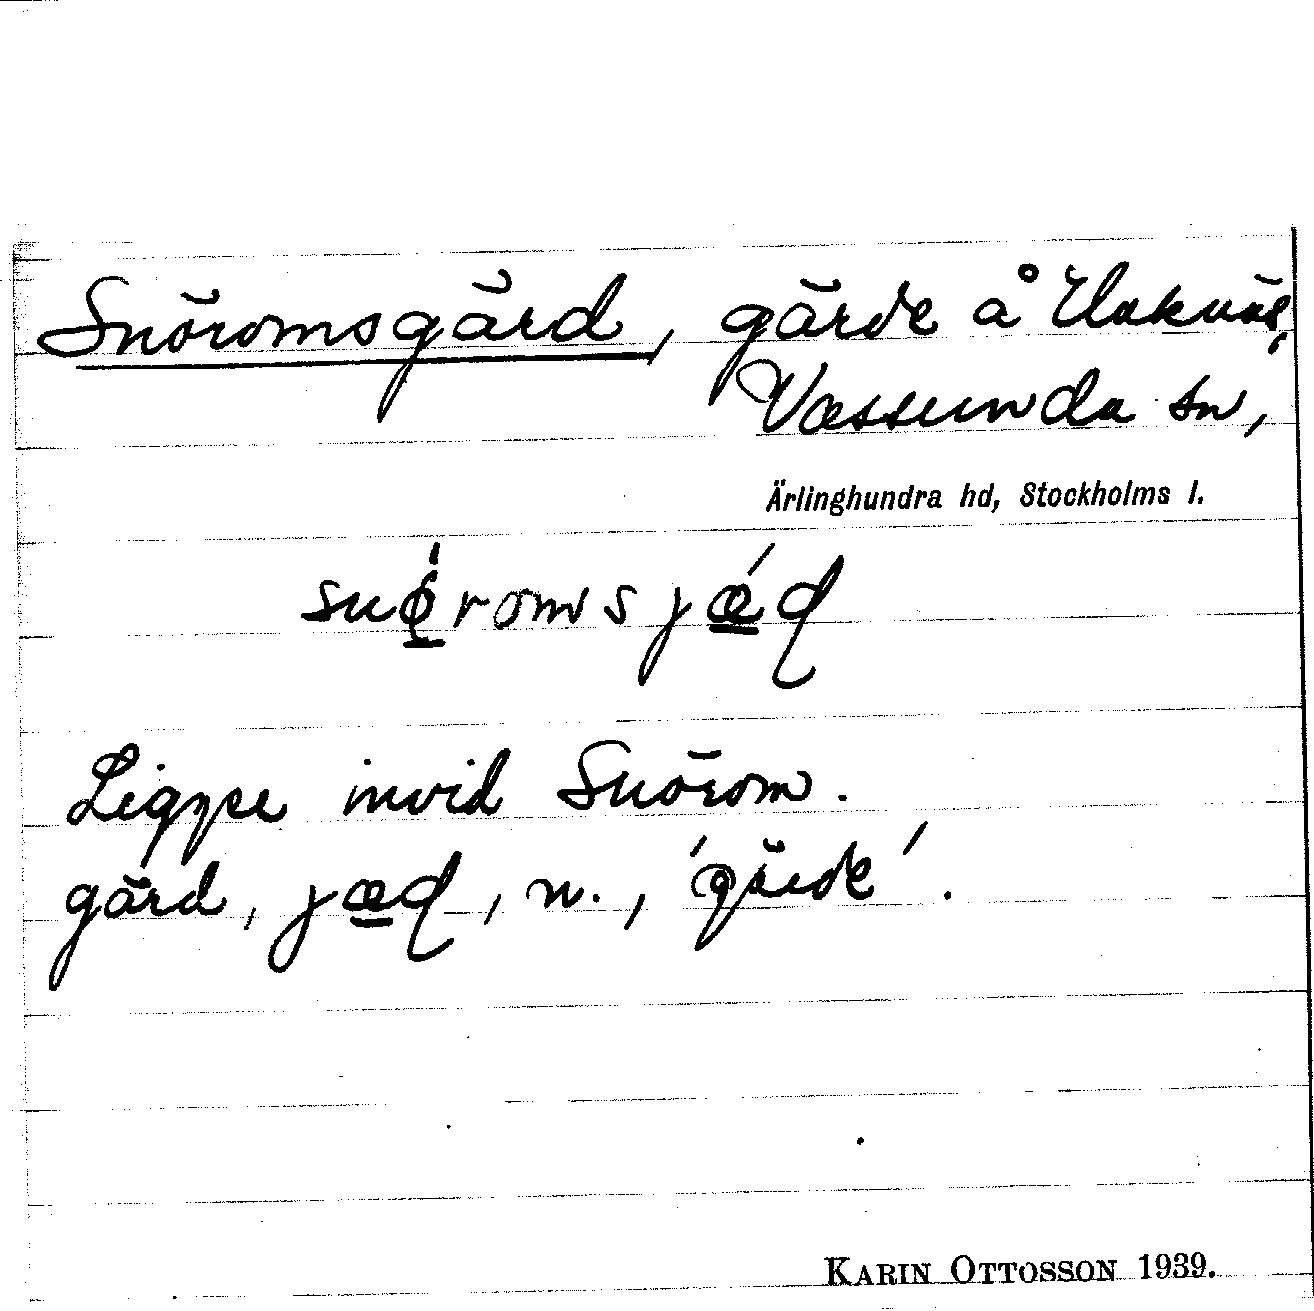 Snöromsgärd, gärde å Vakväl,
Vassunda sn,
Ärlinghundra hd, Stockholms l.
snǿromsjǽ̲ɖ
Ligger invid Snörom.
gärd, jæ̲ɖ, n., 'gärde'.
KARIN OTTOSSON 1939.